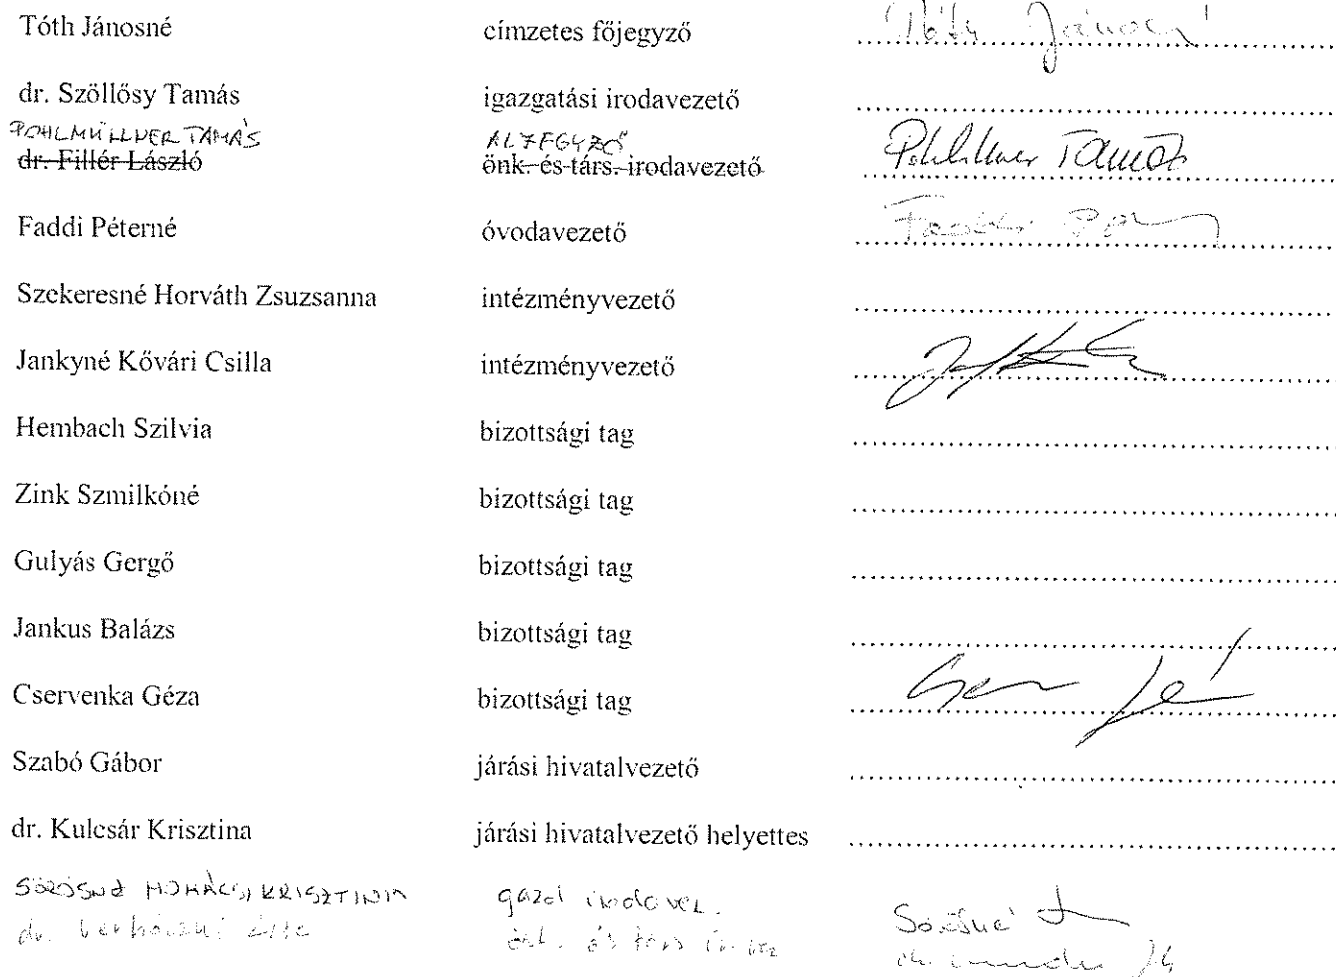 Tóth Jánosné címzetes főjegyző Tóth Jánosné
dr. Szöllősy Tamás igazgatási irodavezető
POHLMÜLLNER TAMÁS ALJEGYZŐ
dr. Fillér László önk. és társ. irodavezető Tamás
Faddi Péterné óvodavezető Faddi
Szekeresné Horváth Zsuzsanna intézményvezető
Jankyné Kővári Csilla intézményvezető
Hembach Szilvia bizottsági tag
Zink Szmilkóné bizottsági tag
Gulyás Gergő bizottsági tag
Jankus Balázs bizottsági tag
Cservenka Géza bizottsági tag
Szabó Gábor járási hivatalvezető
dr. Kulcsár Krisztina járási hivatalvezető helyettes
SÖRÖSNÉ MOHÁCSI KRISZTINA gazd irodavez. Sörösné
dr. és társ